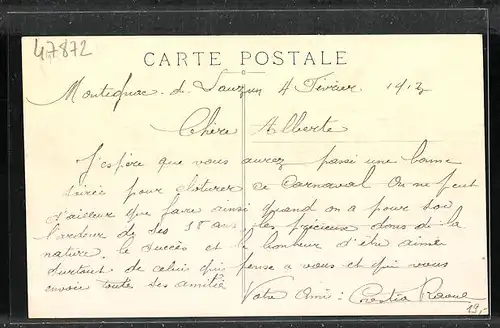 47872
CARTE POSTALE
Montignac-de-Lauzun 4 Février 1913
Chère Alberte
J'espère que vous aurez passé une bonne
soirée pour cloturer ce Carnaval On ne peut
d'ailleur que faire ainsi quand on a pour soi
l'ardeur de ses 18 ans, les précieux dons de la
nature, le succès et le bonheur d'être aimée
surtout de celui qui pense a vous et qui vous
envoie toute ses amitié
Votre Ami :
19,-